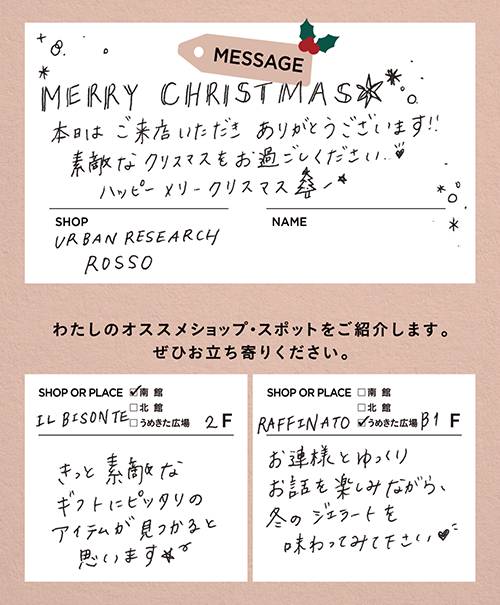 MESSAGE
MERRY CHRISTMAS
本日は ご来店いただき ありがとうございます!!
素敵なクリスマスをお過ごしください..
ハッピーメリークリスマス
SHOP
NAME
URBAN RESEARCH
ROSSO
わたしのオススメショップ・スポットをご紹介します。
ぜひお立ち寄りください。
SHOP OR PLACE ☑南 館
□北 館
IL BISONTE □うめきた広場 2F
きっと 素敵な
ギフトにピッタリの
アイテムが見つかると
思います
SHOP OR PLACE □南 館
□北 館
RAFFINATO ☑うめきた広場 B1 F
お連様とゆっくり
お話を楽しみながら、
冬のジェラートを
味わってみて下さい